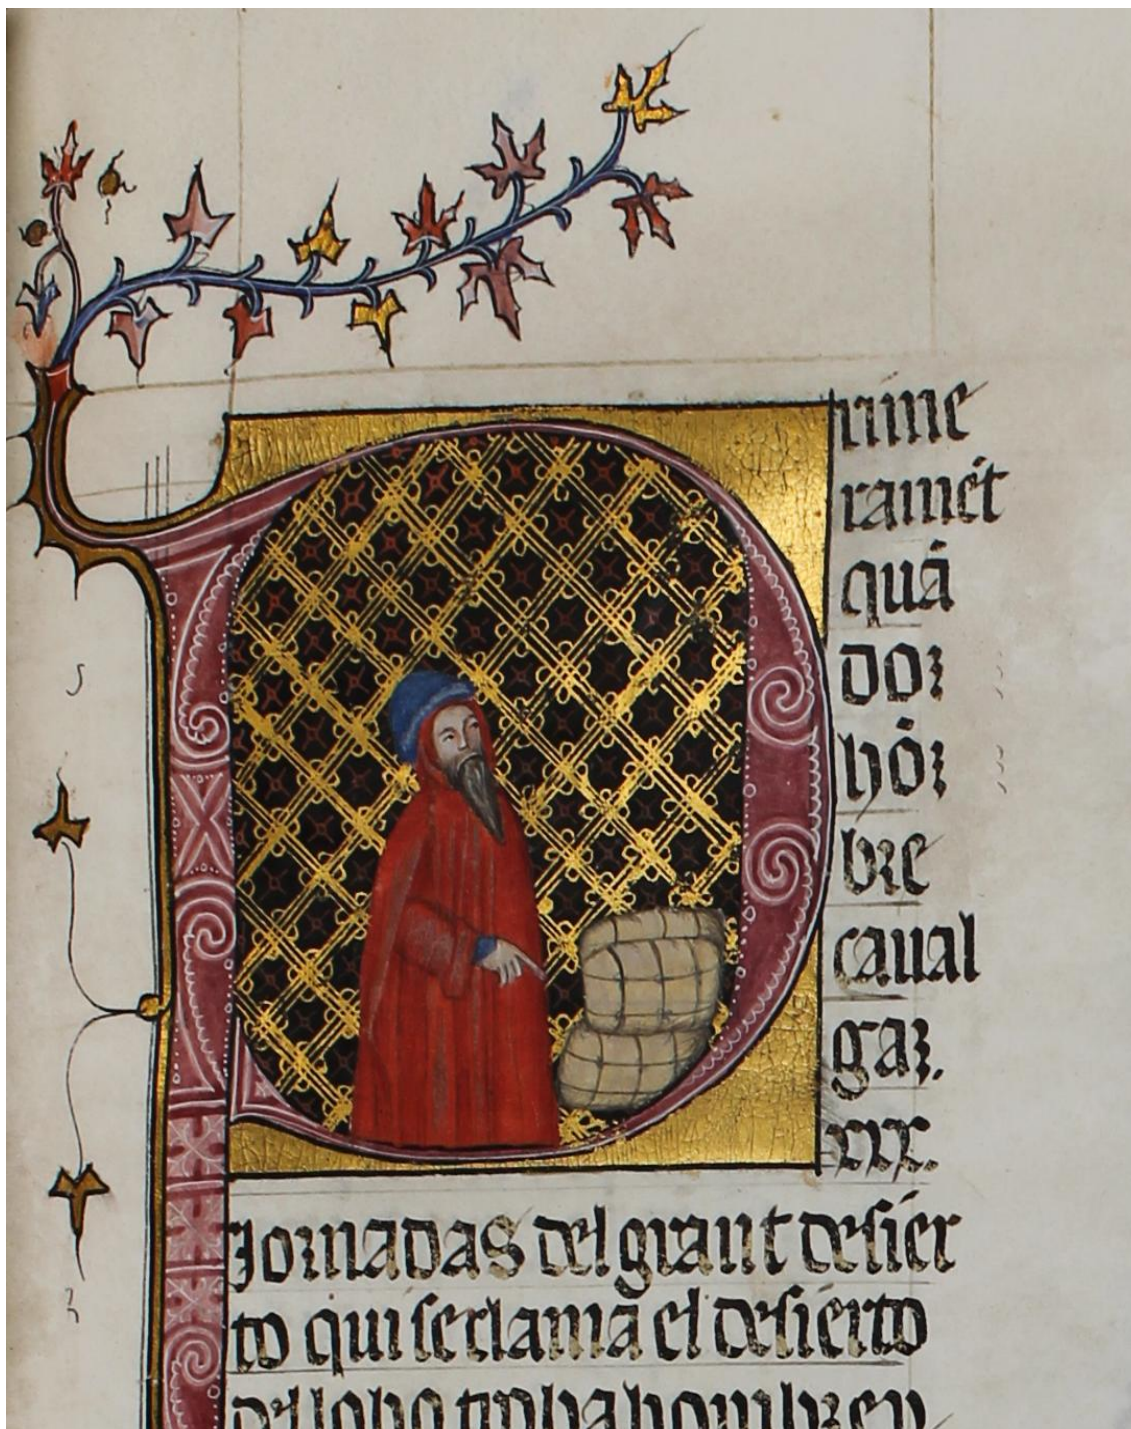 Prime
ramẽt
quã
doz
hõz
bre
caual
gaz.
xxx.
Jornadas del grant desier
to qui se clamã el desierto
del lobo troba hombre vn